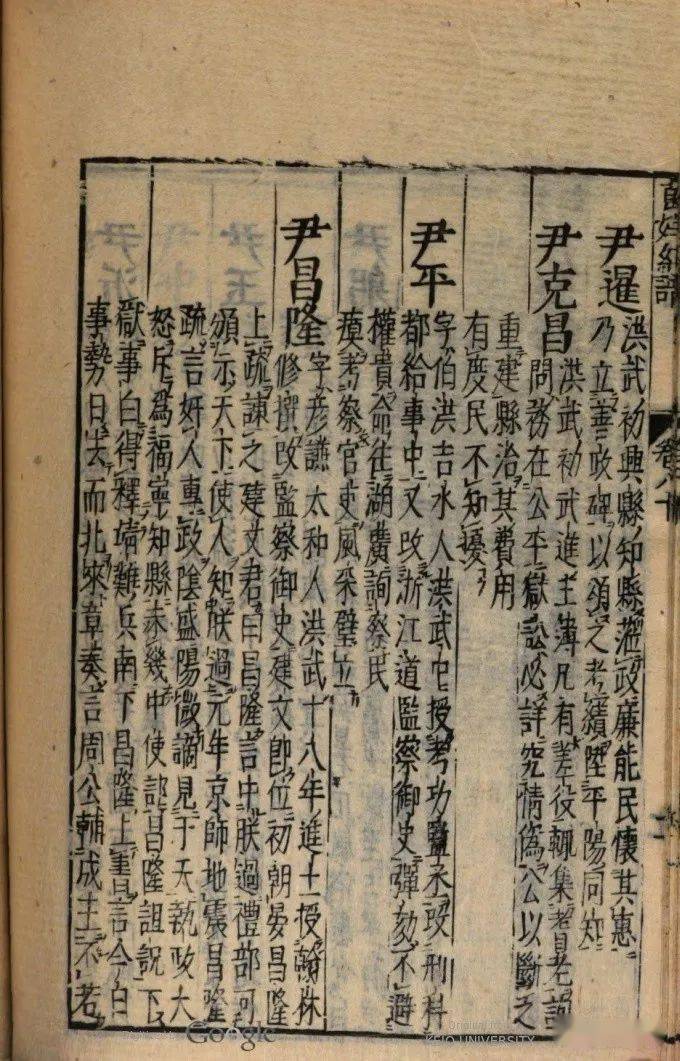 萬姓統譜
卷八十
尹暹 洪武初興縣知縣蒞政廉能民懷其惠
乃立善政碑以頌之考績陞平陽同知
尹克昌 洪武初武進主簿凡有差役輒集耆老詢
問務在公平獄訟必詳究情偽公以斷之
重建縣治其費用
有度民不知擾
尹平 字伯洪吉水人洪武中授考功監丞改刑科
都給事中又改浙江道監察御史彈劾不避
權貴命往湖廣詢察民
瘼考察官吏風采壁立
尹昌隆 字彥謙太和人洪武十八年進士授翰林
修撰改監察御史建文即位初朝晏昌隆
上疏諫之建文君曰昌隆言中朕過禮部可
頒示天下使人知朕過元年京師地震昌隆
疏言奸人專政陰盛陽微謫見于天執政大
怒斥爲福寧知縣未幾中使誣昌隆詛說下
獄事白得釋靖難兵南下昌隆上書言今日
事勢日去而北來章奏言周公輔成王不若
Google
KEIO UNIVERSITY